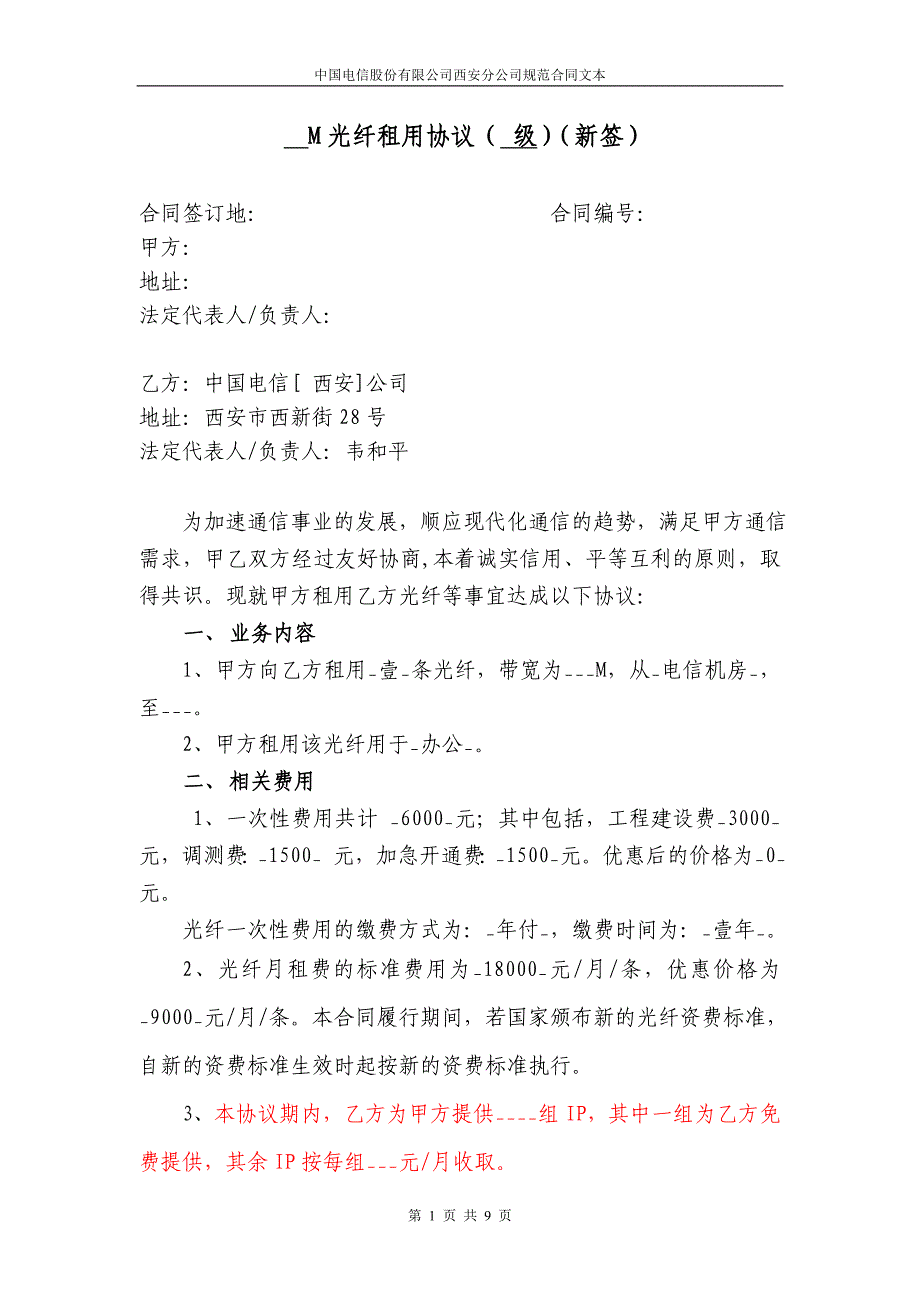 中国电信股份有限公司西安分公司规范合同文本
__M光纤租用协议（_级）（新签）
合同签订地： 合同编号：
甲方：
地址：
法定代表人/负责人：
乙方：中国电信[ 西安]公司
地址：西安市西新街28号
法定代表人/负责人：韦和平
为加速通信事业的发展，顺应现代化通信的趋势，满足甲方通信
需求，甲乙双方经过友好协商,本着诚实信用、平等互利的原则，取
得共识。现就甲方租用乙方光纤等事宜达成以下协议：
一、业务内容
1、甲方向乙方租用_壹_条光纤，带宽为___M，从_电信机房_，
至___。
2、甲方租用该光纤用于_办公_。
二、相关费用
1、一次性费用共计 _6000_元；其中包括，工程建设费_3000_
元，调测费：_1500_ 元，加急开通费：_1500_元。优惠后的价格为_0_
元。
光纤一次性费用的缴费方式为：_年付_，缴费时间为：_壹年_。
2、光纤月租费的标准费用为_18000_元/月/条，优惠价格为
_9000_元/月/条。本合同履行期间，若国家颁布新的光纤资费标准，
自新的资费标准生效时起按新的资费标准执行。
3、本协议期内，乙方为甲方提供____组IP，其中一组为乙方免
费提供，其余IP按每组___元/月收取。
第 1 页 共 9 页